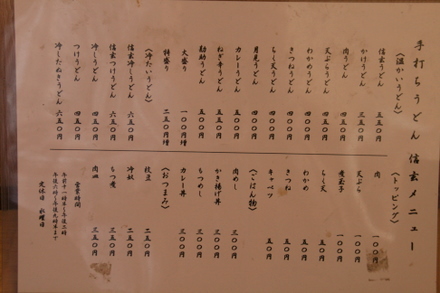 手打ちうどん 信玄メニュー
(温かいうどん)
信玄うどん 五五〇円
かけうどん 三五〇円
肉うどん 四五〇円
天ぷらうどん 四五〇円
わかめうどん 四〇〇円
きつねうどん 四〇〇円
ちく天うどん 四〇〇円
月見うどん 四〇〇円
カレーうどん 五〇〇円
ねぎ辛うどん 五〇〇円
勘助うどん 五五〇円
大盛り 一〇〇円増
特盛り 二五〇円増
(冷たいうどん)
信玄冷しうどん 六五〇円
信玄つけうどん 六五〇円
冷しうどん 四五〇円
つけうどん 四五〇円
冷したぬきうどん 六五〇円
(トッピング)
肉 一〇〇円
天ぷら 一〇〇円
煮玉子 一〇〇円
ちく天 五〇円
わかめ 五〇円
きつね 五〇円
キャベツ 五〇円
(ごはん物)
肉めし 三〇〇円
かき揚げ丼 三〇〇円
もつめし 三〇〇円
カレー丼 三〇〇円
(おつまみ)
枝豆 二五〇円
冷奴 二五〇円
もつ煮 三五〇円
肉皿 三五〇円
営業時間
午前十一時半~午後二時
午後六時~午後九時半まで
定休日 火曜日